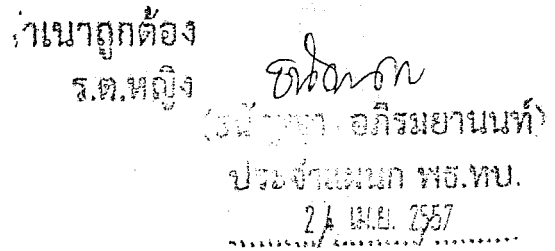 สำเนาถูกต้อง
ร.ต.หญิง
อภิรมยานนท์)
ประจำแผนก พธ.ทบ.
เม.ย. 2557